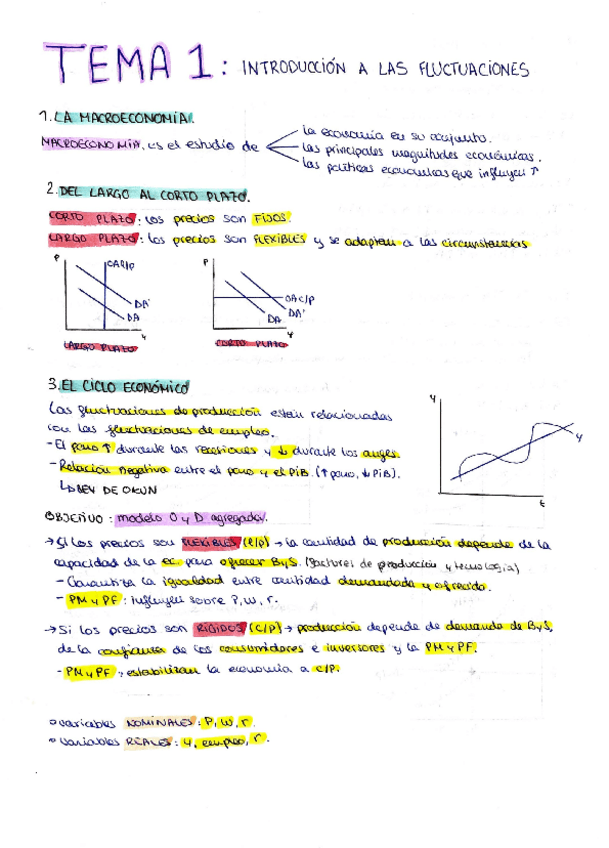 TEMA 1: INTRODUCCIÓN A LAS FLUCTUACIONES
1. LA MACROECONOMÍA.
MACROECONOMÍA. es el estudio de
la economía en su conjunto.
las principales magnitudes económicas.
las políticas económicas que influyen ↑
2. DEL LARGO AL CORTO PLAZO.
CORTO PLAZO: los precios son FIJOS.
LARGO PLAZO: los precios son FLEXIBLES y se adaptan a las circunstancias
P
OAR/P
DA'
DA
Y
LARGO PLAZO
P
OAC/P
DA
DA'
Y
CORTO PLAZO
3. EL CICLO ECONÓMICO
Las fluctuaciones de producción están relacionadas
con las fluctuaciones de empleo.
- El paro ↑ durante las recesiones y ↓ durante los auges.
- Relación negativa entre el paro y el PIB. (↑ paro, ↓ PIB).
↳ LEY DE OKUN
Y
Y
t
OBJETIVO: modelo O y D agregadas.
→ Si los precios son FLEXIBLES (l/p) → la cantidad de producción depende de la
capacidad de la ec. para ofrecer ByS. (factores de producción y tecnología)
- Garantiza la igualdad entre cantidad demandada y ofrecida.
- PM y PF: influyen sobre P, W, r.
→ Si los precios son RÍGIDOS (C/P) → producción depende de demanda de ByS,
de la confianza de los consumidores e inversores y la PM y PF.
- PM y PF: estabilizan la economía a C/P.
○ variables NOMINALES: P, W, r.
○ variables REALES: Y, empleo, r.